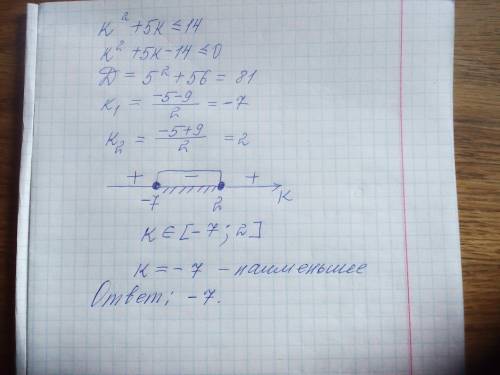 к² + 5к ≤ 14
к² + 5к - 14 ≤ 0
D = 5² + 56 = 81
к₁ = (-5-9)/2 = -7
к₂ = (-5+9)/2 = 2
+ − +
-7 2 к
к ∈ [-7; 2]
к = -7 - наименьшее
Ответ; -7.